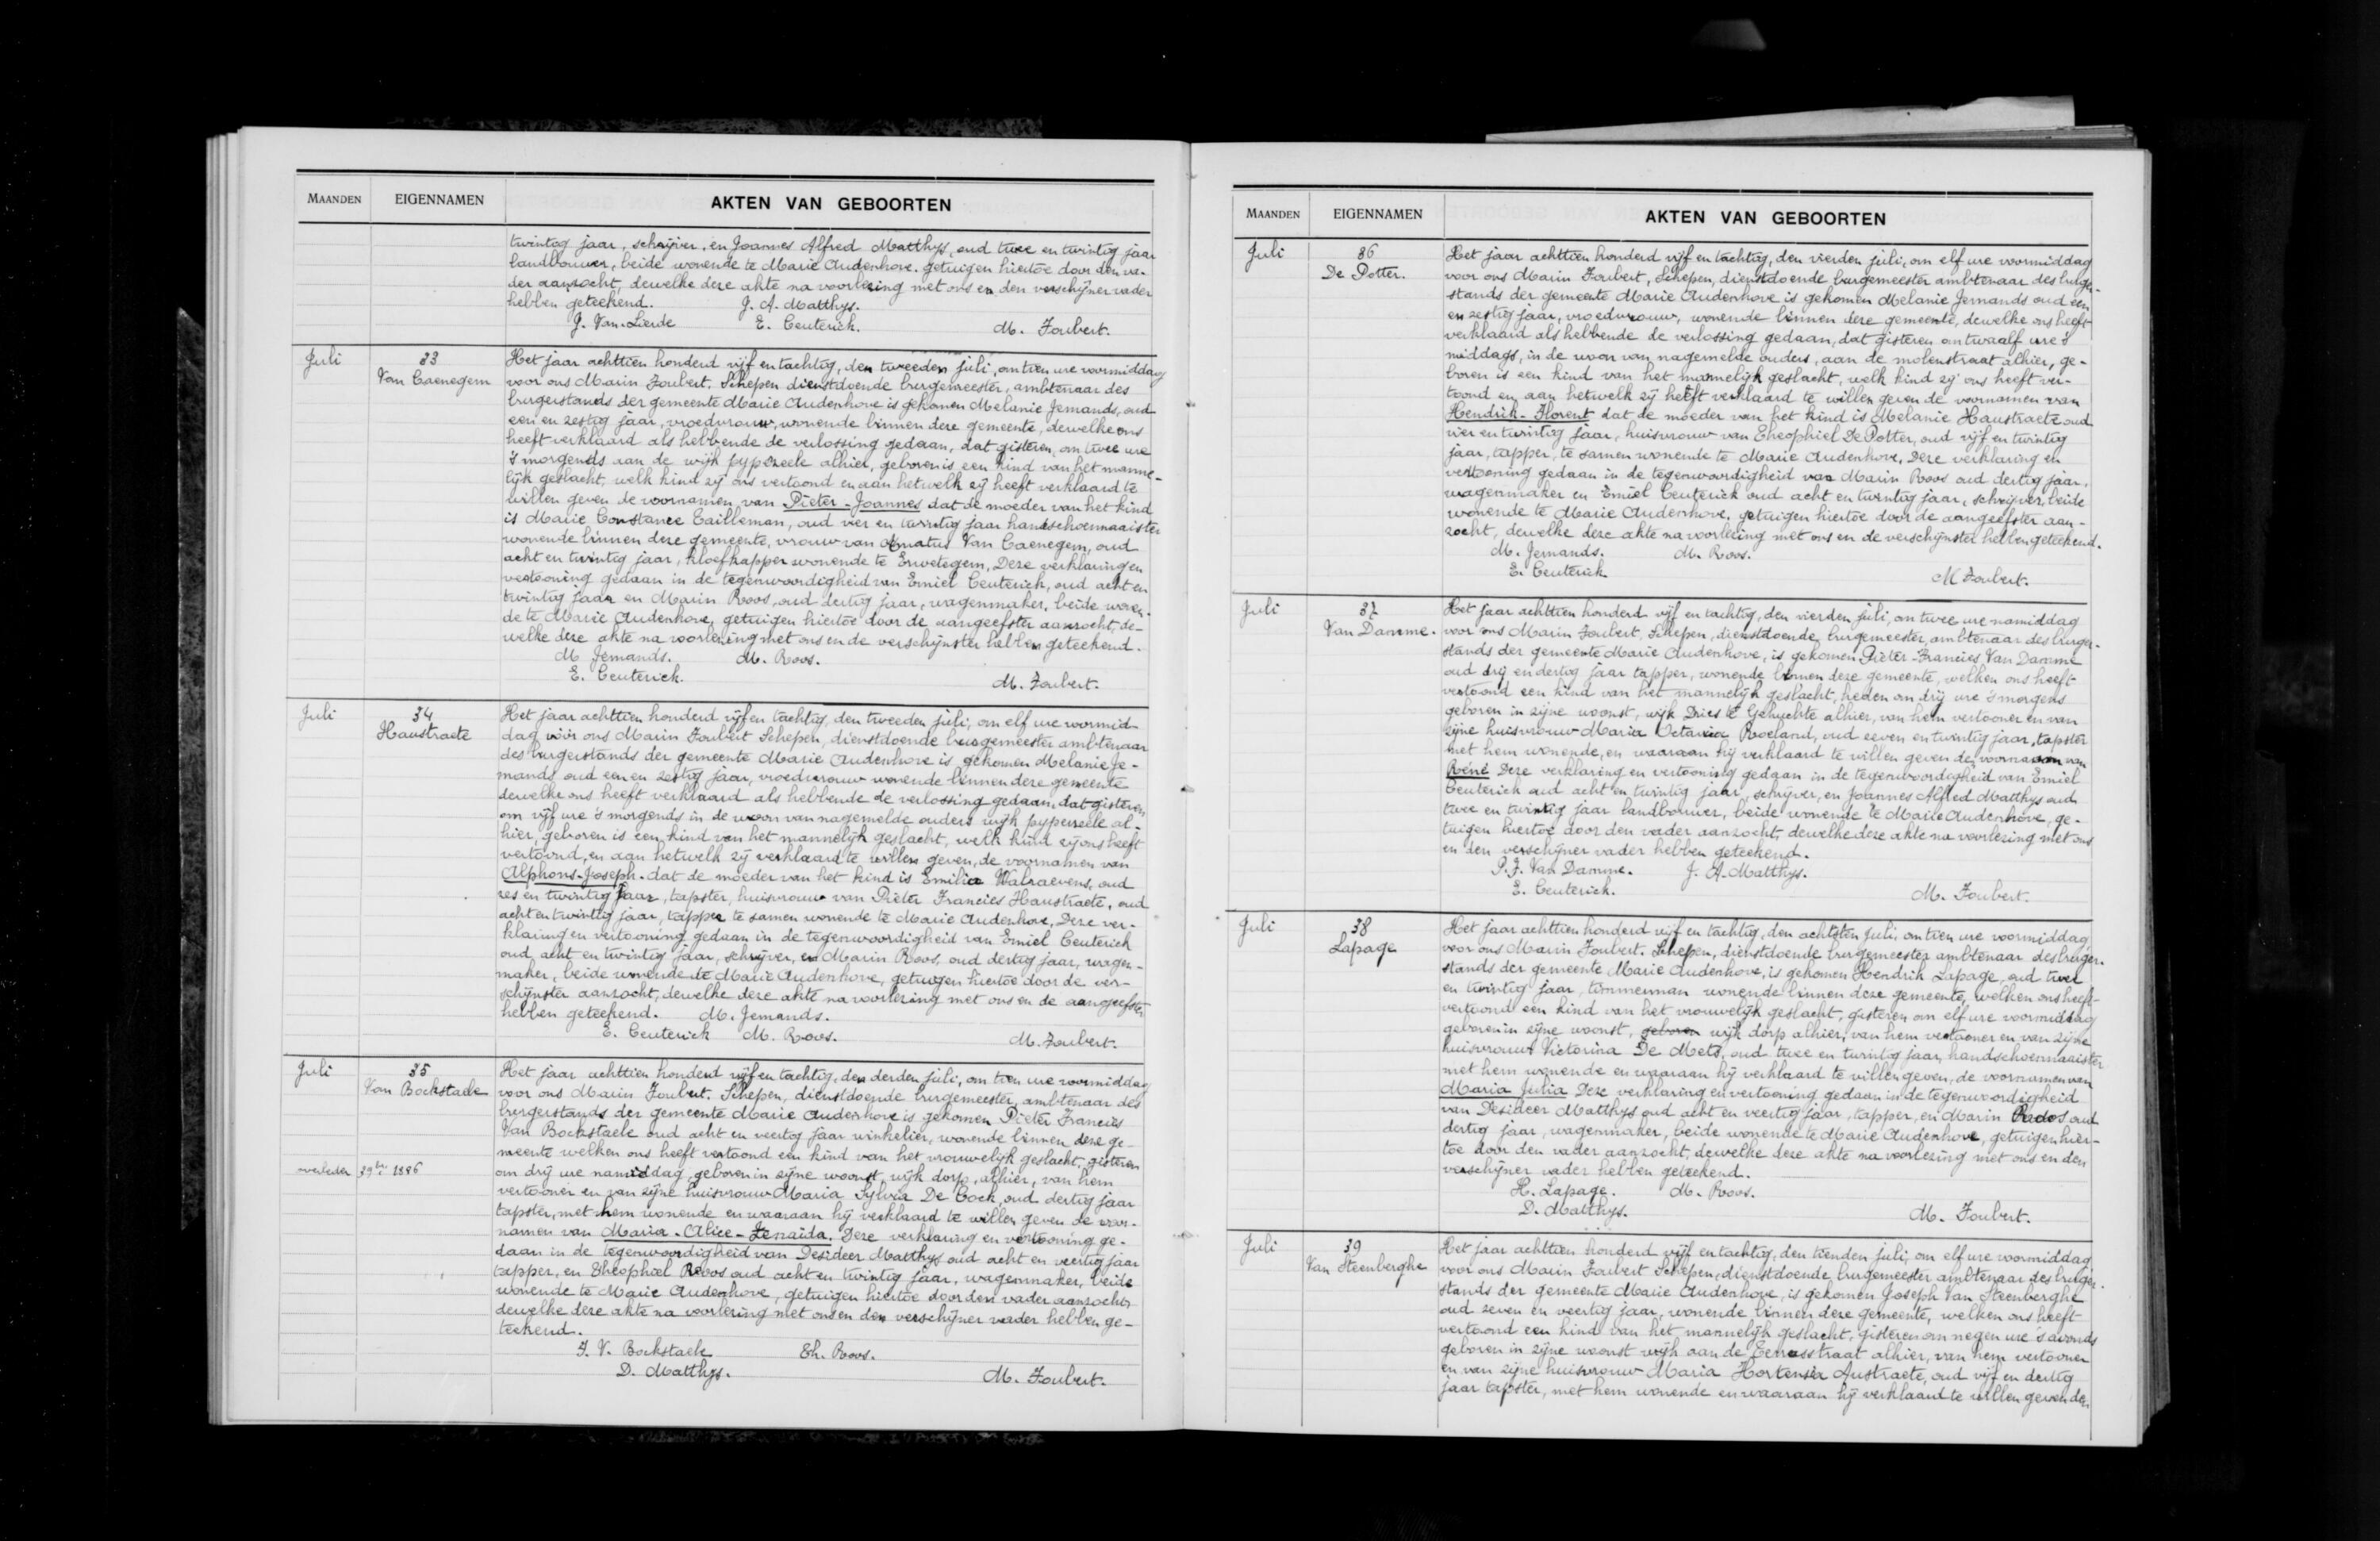 MAANDEN EIGENNAMEN AKTEN VAN GEBOORTEN
twintig jaar, schrijver, en Joannes Alfred Matthys, oud twee en twintig jaar
landbouwer, beide wonende te Marie Audenhove. getuigen hiertoe door den va-
der aanzocht, dewelke deze akte na voorlezing met ons en den verschijner vader
hebben geteekend. J. A. Matthys.
J. Van Lierde E. Ceuterick. M. Joubert.
Juli 33 Het jaar achttien honderd vijf en tachtig, den tweeden juli, om tien ure voormiddag
Van Caenegem voor ons Marin Joubert. Schepen dienstdoende burgemeester, ambtenaar des
burgerstands der gemeente Marie Audenhove is gekomen Melanie Jemands, oud
een en zestig jaar, vroedvrouw, wonende binnen deze gemeente, dewelke ons
heeft verklaard als hebbende de verlossing gedaan, dat gisteren, om twee ure
's morgends aan de wijk pypezeele alhier, geboren is een kind van het manne-
lijk geslacht, welk kind zij ons vertoond en aan hetwelk zij heeft verklaard te
willen geven de voornamen van Pieter-Joannes dat de moeder van het kind
is Marie Constance Cailleman, oud vier en twintig jaar handschoenmaaister
wonende binnen deze gemeente, vrouw van Amatus Van Caenegem, oud
acht en twintig jaar, kloefkapper wonende te Erwetegem, Deze verklaring en
vertooning gedaan in de tegenwoordigheid van Emiel Ceuterick, oud acht en
twintig jaar en Marin Roos, oud dertig jaar, wagenmaker, beide wonen-
de te Marie Audenhove, getuigen hiertoe door de aangeefster aanzocht, de-
welke deze akte na voorlezing met ons en de verschijnster hebben geteekend.
M Jemands. M. Roos.
E. Ceuterick. M. Joubert.
Juli 34 Het jaar achttien honderd vijf en tachtig, den tweeden juli, om elf ure voormid-
Haustraete dag voor ons Marin Joubert Schepen, dienstdoende burgemeester ambtenaar
des burgerstands der gemeente Marie Audenhove is gekomen Melanie Je-
mands oud een en zestig jaar, vroedvrouw wonende binnen deze gemeente
dewelke ons heeft verklaard als hebbende de verlossing gedaan, dat gisteren
om vijf ure 's morgends in de woon van nagemelde ouders wijk pypezeele al-
hier, geboren is een kind van het mannelijk geslacht, welk kind zij ons heeft
vertoond, en aan hetwelk zij verklaard te willen geven, de voornamen van
Alphons-Joseph. dat de moeder van het kind is Emilia Walraevens, oud
zes en twintig jaar, tapster, huisvrouw van Pieter Francies Haustraete, oud
acht en twintig jaar, tapper te samen wonende te Marie Audenhove, Deze ver-
klaring en vertooning gedaan in de tegenwoordigheid van Emiel Ceuterick
oud acht en twintig jaar, schrijver, en Marin Roos, oud dertig jaar, wagen-
maker, beide wonende te Marie Audenhove, getuigen hiertoe door de ver-
schijnster aanzocht, dewelke deze akte na voorlezing met ons en de aangeefster
hebben geteekend. M. Jemands.
E. Ceuterick M. Roos. M. Joubert.
Juli 35 Het jaar achttien honderd vijf en tachtig, den derden juli, om tien ure voormiddag
Van Bockstaele voor ons Marin Joubert. Schepen, dienstdoende burgemeester, ambtenaar des
burgerstands der gemeente Marie Audenhove is gekomen Pieter Francies
Van Bockstaele oud acht en veertig jaar winkelier, wonende binnen deze ge-
meente welken ons heeft vertoond een kind van het vrouwelijk geslacht, gisteren
overleden 1886 om drij ure namiddag, geboren in zijne woonst, wijk dorp, alhier, van hem
vertooner en van zijne huisvrouw Maria Sylvia De Cock, oud dertig jaar
tapster, met hem wonende en waaraan hij verklaard te willen geven de voor-
namen van Maria-Alice-Zenaïda. Deze verklaring en vertooning ge-
daan in de tegenwoordigheid van Desideer Matthys oud acht en veertig jaar
tapper, en Theophiel Roos oud acht en twintig jaar, wagenmaker, beide
wonende te Marie Audenhove, getuigen hiertoe door den vader aanzocht,
dewelke deze akte na voorlezing met ons en den verschijner vader hebben ge-
teekend.
V. Bockstaele Th. Roos.
D. Matthys. M. Joubert.
MAANDEN EIGENNAMEN AKTEN VAN GEBOORTEN
Juli 36 Het jaar achttien honderd vijf en tachtig, den vierden juli, om elf ure voormiddag
De Potter. voor ons Marin Joubert, Schepen, dienstdoende burgemeester ambtenaar des burger-
stands der gemeente Marie Audenhove is gekomen Melanie Jemands oud een
en zestig jaar, vroedvrouw, wonende binnen deze gemeente, dewelke ons heeft
verklaard als hebbende de verlossing gedaan, dat gisteren om twaalf ure 's
middags, in de woon van nagemelde ouders, aan de molenstraat alhier, ge-
boren is een kind van het mannelijk geslacht, welk kind zij ons heeft ver-
toond en aan hetwelk zij heeft verklaard te willen geven de voornamen van
Hendrik-Florent dat de moeder van het kind is Melanie Haustraete oud
vier en twintig jaar, huisvrouw van Theophiel De Potter, oud vijf en twintig
jaar, tapper, te samen wonende te Marie Audenhove, Deze verklaring en
vertooning gedaan in de tegenwoordigheid van Marin Roos oud dertig jaar,
wagenmaker en Emiel Ceuterick oud acht en twintig jaar, schrijver, beide
wonende te Marie Audenhove, getuigen hiertoe door de aangeefster aan-
zocht, dewelke deze akte na voorlezing met ons en de verschijnster hebben geteekend.
M. Jemands. M. Roos.
E. Ceuterick M Joubert.
Juli 37 Het jaar achttien honderd vijf en tachtig, den vierden juli, om twee ure namiddag
Van Damme. voor ons Marin Joubert, Schepen, dienstdoende burgemeester, ambtenaar des burger-
stands der gemeente Marie Audenhove, is gekomen Pieter-Francies Van Damme
oud drij en dertig jaar tapper, wonende binnen deze gemeente, welken ons heeft
vertoond een kind van het mannelijk geslacht, heden om drij ure 's morgens
geboren in zijne woonst, wijk Dries 't Gehuchte alhier, van hem vertooner en van
zijne huisvrouw Maria Octavia Roeland, oud zeven en twintig jaar, tapster
met hem wonende, en waaraan hij verklaard te willen geven de voornaam van
René Deze verklaring en vertooning gedaan in de tegenwoordigheid van Emiel
Ceuterick oud acht en twintig jaar, schrijver, en Joannes Alfred Matthys oud
twee en twintig jaar landbouwer, beide wonende te Marie Audenhove, ge-
tuigen hiertoe door den vader aanzocht, dewelke deze akte na voorlezing met ons
en den verschijner vader hebben geteekend.
P. F. Van Damme. J. A. Matthys.
E. Ceuterick. M. Joubert.
Juli 38 Het jaar achttien honderd vijf en tachtig, den achtsten Juli, om tien ure voormiddag,
Lapage voor ons Marin Joubert. Schepen, dienstdoende burgemeester ambtenaar des burger-
stands der gemeente Marie Audenhove, is gekomen Hendrik Lapage, oud twee
en twintig jaar, timmerman wonende binnen deze gemeente, welken ons heeft
vertoond een kind van het vrouwelijk geslacht, gisteren om elf ure voormiddag
geboren in zijne woonst, geboren wijk dorp alhier, van hem vertooner en van zijne
huisvrouw Victorina De Mets, oud twee en twintig jaar, handschoenmaaister
met hem wonende en waaraan hij verklaard te willen geven, de voornamen van
Maria Julia Deze verklaring en vertooning gedaan in de tegenwoordigheid
van Desideer Matthys oud acht en veertig jaar, tapper, en Marin Roos oud
dertig jaar, wagenmaker, beide wonende te Marie Audenhove, getuigen hier-
toe door den vader aanzocht, dewelke deze akte na voorlezing met ons en den
verschijner vader hebben geteekend.
H. Lapage. M. Roos.
D. Matthys. M. Joubert.
Juli 39 Het jaar achttien honderd vijf en tachtig, den tienden juli, om elf ure voormiddag,
Van Steenberghe voor ons Marin Joubert Schepen, dienstdoende burgemeester ambtenaar des burger-
stands der gemeente Marie Audenhove, is gekomen Joseph Van Steenberghe
oud zeven en veertig jaar, wonende binnen deze gemeente, welken ons heeft
vertoond een kind van het mannelijk geslacht, gisteren om negen ure 's avonds
geboren in zijne woonst wijk aan de alhier, van hem vertooner
en van zijne huisvrouw Maria Hortensia Austraete, oud vijf en dertig
jaar tapster, met hem wonende en waaraan hij verklaard te willen geven den